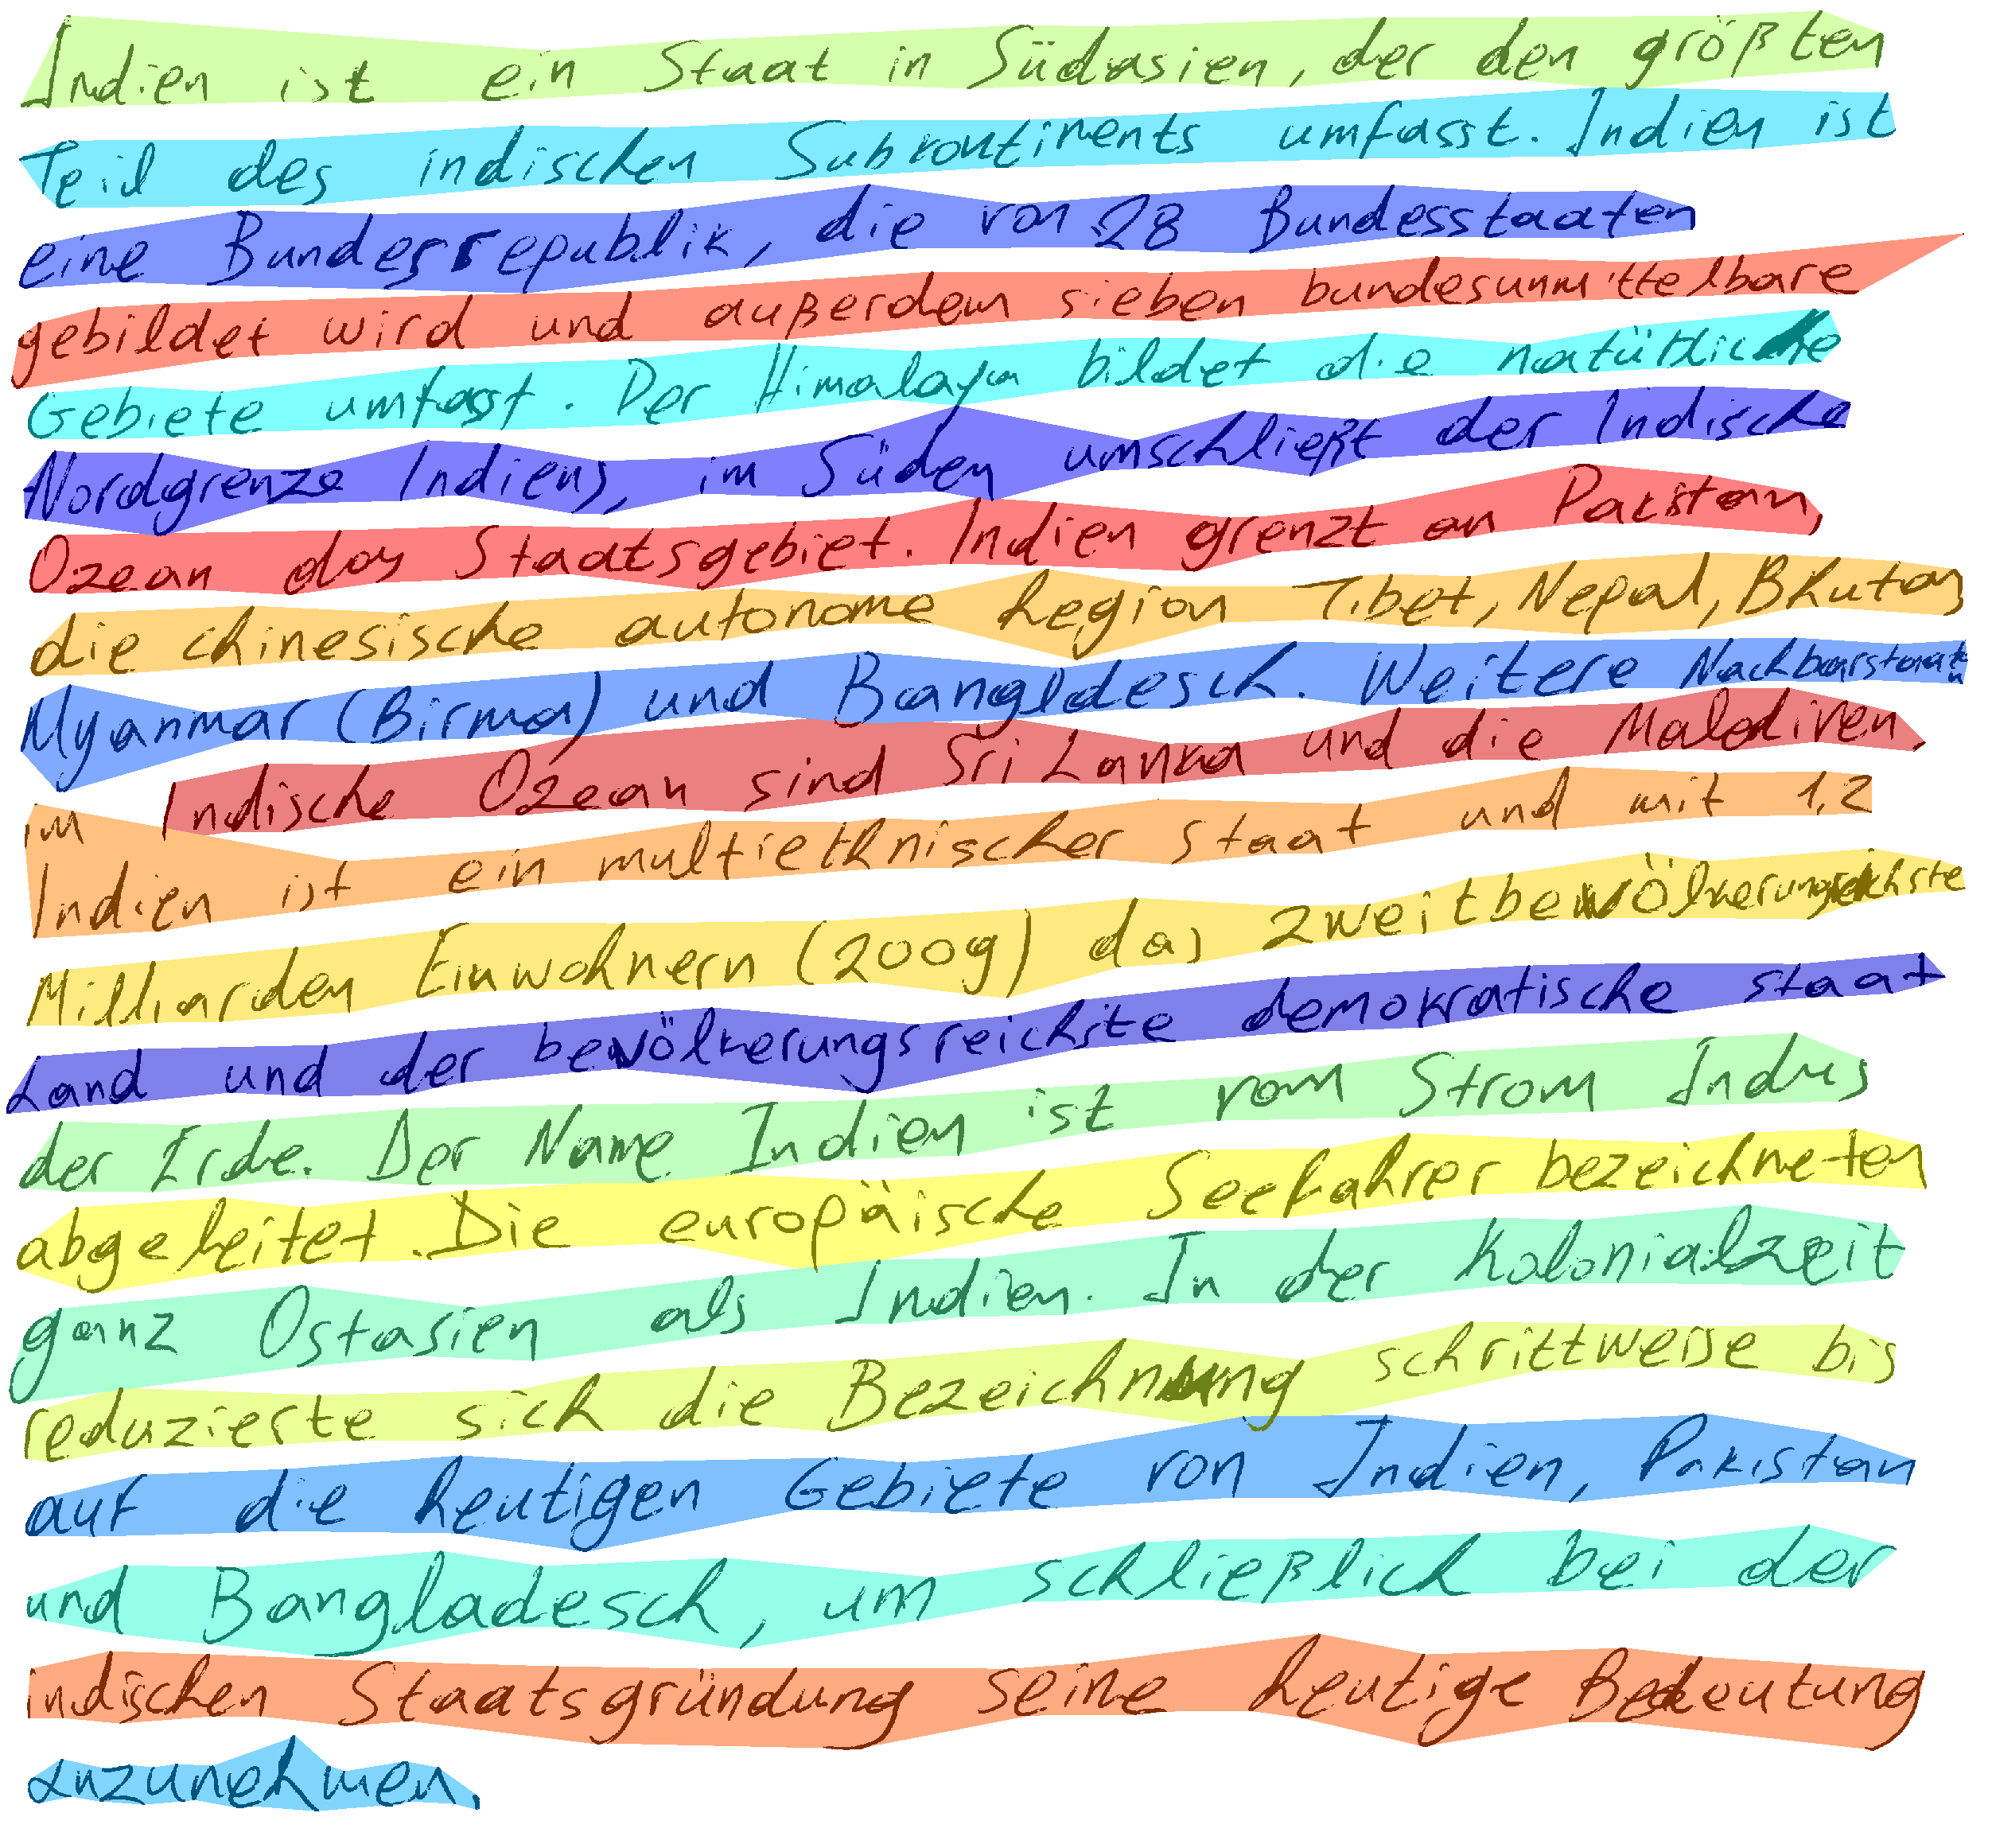 Indien ist ein Staat in Südasien, der den größten
Teil des indischen Subkontinents umfasst. Indien ist
eine Bundesrepublik, die von 28 Bundesstaaten
gebildet wird und außerdem sieben bundesunmittelbare
Gebiete umfasst. Der Himalaya bildet die natürliche
Nordgrenze Indiens, im Süden umschließt der Indische
Ozean das Staatsgebiet. Indien grenzt an Pakistan,
die chinesische autonome Region Tibet, Nepal, Bhutan,
Myanmar (Birma) und Bangldesch. Weitere Nachbarstaaten
im Indische Ozean sind Sri Lanka und die Malediven.
Indien ist ein multiethnischer Staat und mit 1,2
Milliarden Einwohnern (2009) das zweitbevölkerungsreichste
Land und der bevölkerungsreichste demokratische staat
der Erde. Der Name Indien ist vom Strom Indus
abgeleitet. Die europäische Seefahrer bezeichneten
ganz Ostasien als Indien. In der Kolonialzeit
reduzierte sich die Bezeichnung schrittweise bis
auf die heutigen Gebiete von Indien, Pakistan
und Bangladesch, um schließlich bei der
indischen Staatsgründung seine heutige Bedeutung
anzunehmen.